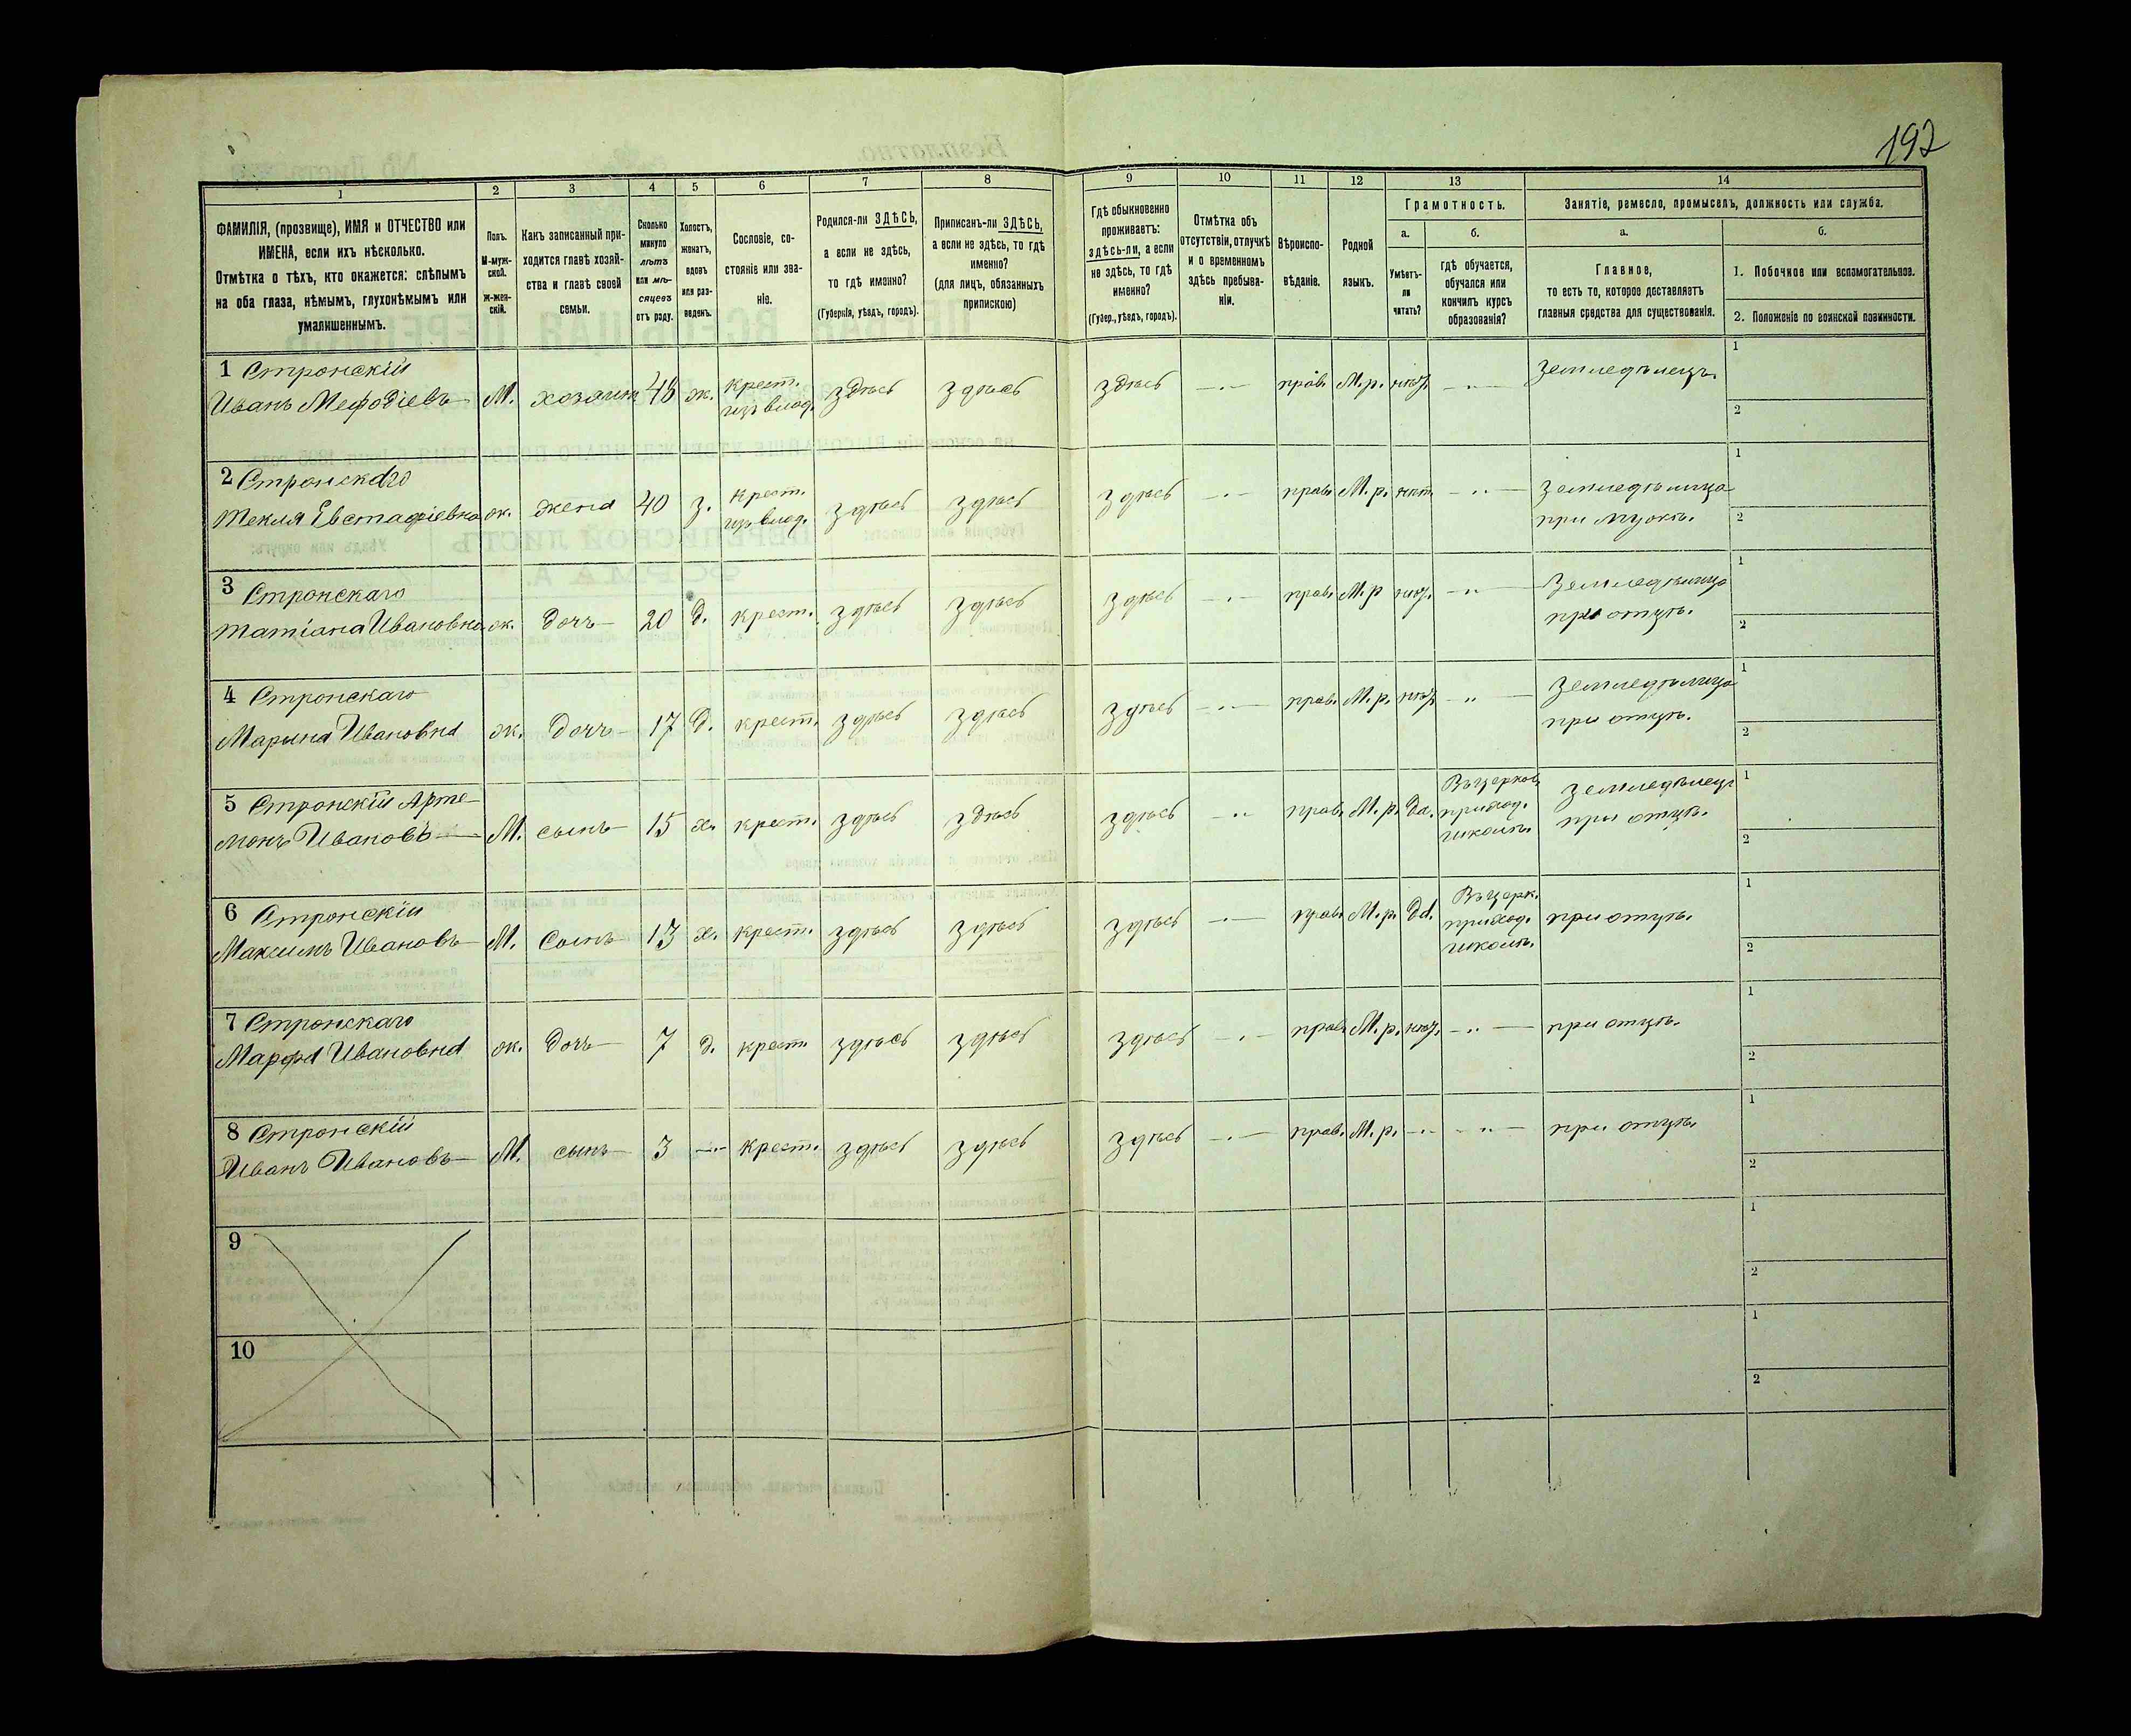 192
1 2 3 4 5 6 7 8 9 10 11 12 13 14
ФАМИЛІЯ, (прозвище), ИМЯ и ОТЧЕСТВО или
ИМЕНА, если ихъ нѣсколько.
Отмѣтка о тѣхъ, кто окажется: слѣпымъ
на оба глаза, нѣмымъ, глухонѣмымъ или
умалишеннымъ.
Полъ.
М-муж-
ской.
ж-жен-
скій.
Какъ записанный при-
ходится главѣ хозяй-
ства и главѣ своей
семьи.
Сколько
минуло
лѣтъ
или мѣ-
сяцевъ
отъ роду.
Холостъ,
женатъ,
вдовъ
или раз-
веденъ.
Сословіе, со-
стояніе или зва-
ніе.
Родился-ли ЗДѢСЬ,
а если не здѣсь,
то гдѣ именно?
(Губернія, уѣздъ, городъ).
Приписанъ-ли ЗДѢСЬ,
а если не здѣсь, то гдѣ
именно?
(для лицъ, обязанныхъ
припискою)
Гдѣ обыкновенно
проживаетъ:
здѣсь-ли, а если
не здѣсь, то гдѣ
именно?
(Губер., уѣздъ, городъ).
Отмѣтка объ
отсутствіи, отлучкѣ
и о временномъ
здѣсь пребыва-
ніи.
Вѣроиспо-
вѣданіе.
Родной
языкъ.
Грамотность.
а.
Умѣетъ-
ли
читать?
б.
гдѣ обучается,
обучался или
кончилъ курсъ
образованія?
Занятіе, ремесло, промыселъ, должность или служба.
а.
Главное,
то есть то, которое доставляетъ
главныя средства для существованія.
б.
1. Побочное или вспомогательное.
2. Положеніе по воинской повинности.
1 Стронскій
Иванъ Мефодіевъ М. хозяинъ 48 ж. крест. из влад. здѣсь здѣсь здѣсь прав. М.р. нѣт. Земледѣлецъ.
1
2
2 Стронскаго
Текля Евстафіевна ж. жена 40 з. крест. из влад. здѣсь здѣсь здѣсь прав. М.р. нѣт. Земледѣлица
при мужѣ.
1
2
3 Стронскаго
Татіана Ивановна ж. дочь 20 д. крест. здѣсь здѣсь здѣсь прав. М.р нѣт. Земледѣлица
при отцѣ.
1
2
4 Стронскаго
Марина Ивановна ж. дочь 17 д. крест. здѣсь здѣсь здѣсь прав. М.р. нѣт Земледѣлица
при отцѣ.
1
2
5 Стронскій Арте-
монъ Ивановъ М. сынъ 15 х. крест. здѣсь здѣсь здѣсь прав. М.р. да. Въ церков.
приход.
школѣ.
Земледѣлецъ
при отцѣ.
1
2
6 Стронскій
Максимъ Ивановъ М. сынъ 13 х. крест. здѣсь здѣсь здѣсь прав. М.р. да. Въ церк.
приход.
школѣ.
при отцѣ.
1
2
7 Стронскаго
Марфа Ивановна ж. дочь 7 д. крест. здѣсь здѣсь здѣсь прав. М.р. нѣт. при отцѣ.
1
2
8 Стронскій
Иванъ Ивановъ М. сынъ 3 крест. здѣсь здѣсь здѣсь прав. М.р. при отцѣ.
1
2
9
1
2
10
1
2